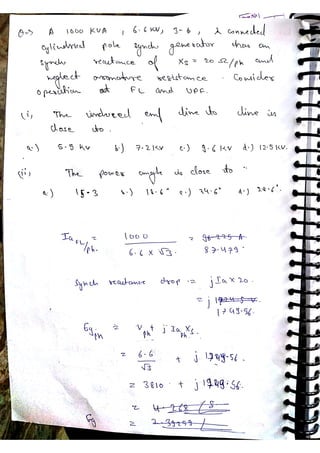 Q=> A 1000 KVA, 6.6 KV, 3-ϕ, λ connected
cylindrical pole synchr generator has an
synchr reactance of Xs = 20 Ω/ph and
neglect armature resistance. Consider
operation at FL and UPF.
(i, The induced emf line to line is
close to.
a.) 5.5 kv b.) 7.2 KV c.) 9.6 KV d.) 12.5 KV.
(ii, The power angle is close to
a.) 15.3 b.) 18.6° c.) 24.6° d.) 28.6°.
Ia FL/ph. = 1000 / 6.6 × √3 = 87.479.
Synch reactance drop = j Ia × 20.
= j 1749.56.
Eg ph = Vph + j Ia ph Xs.
= 6.6 / √3 + j 1749.56
= 3810 + j 1749.56.
=
Eg =